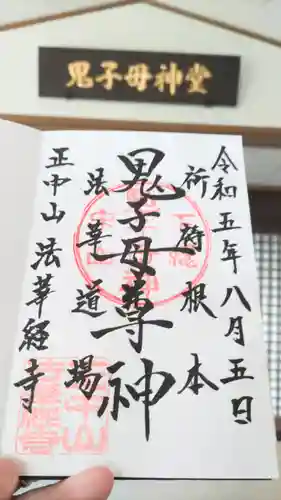 鬼子母神堂
令和五年八月五日
祈祷根本
鬼子母尊神
法華道場
正中山法華経寺